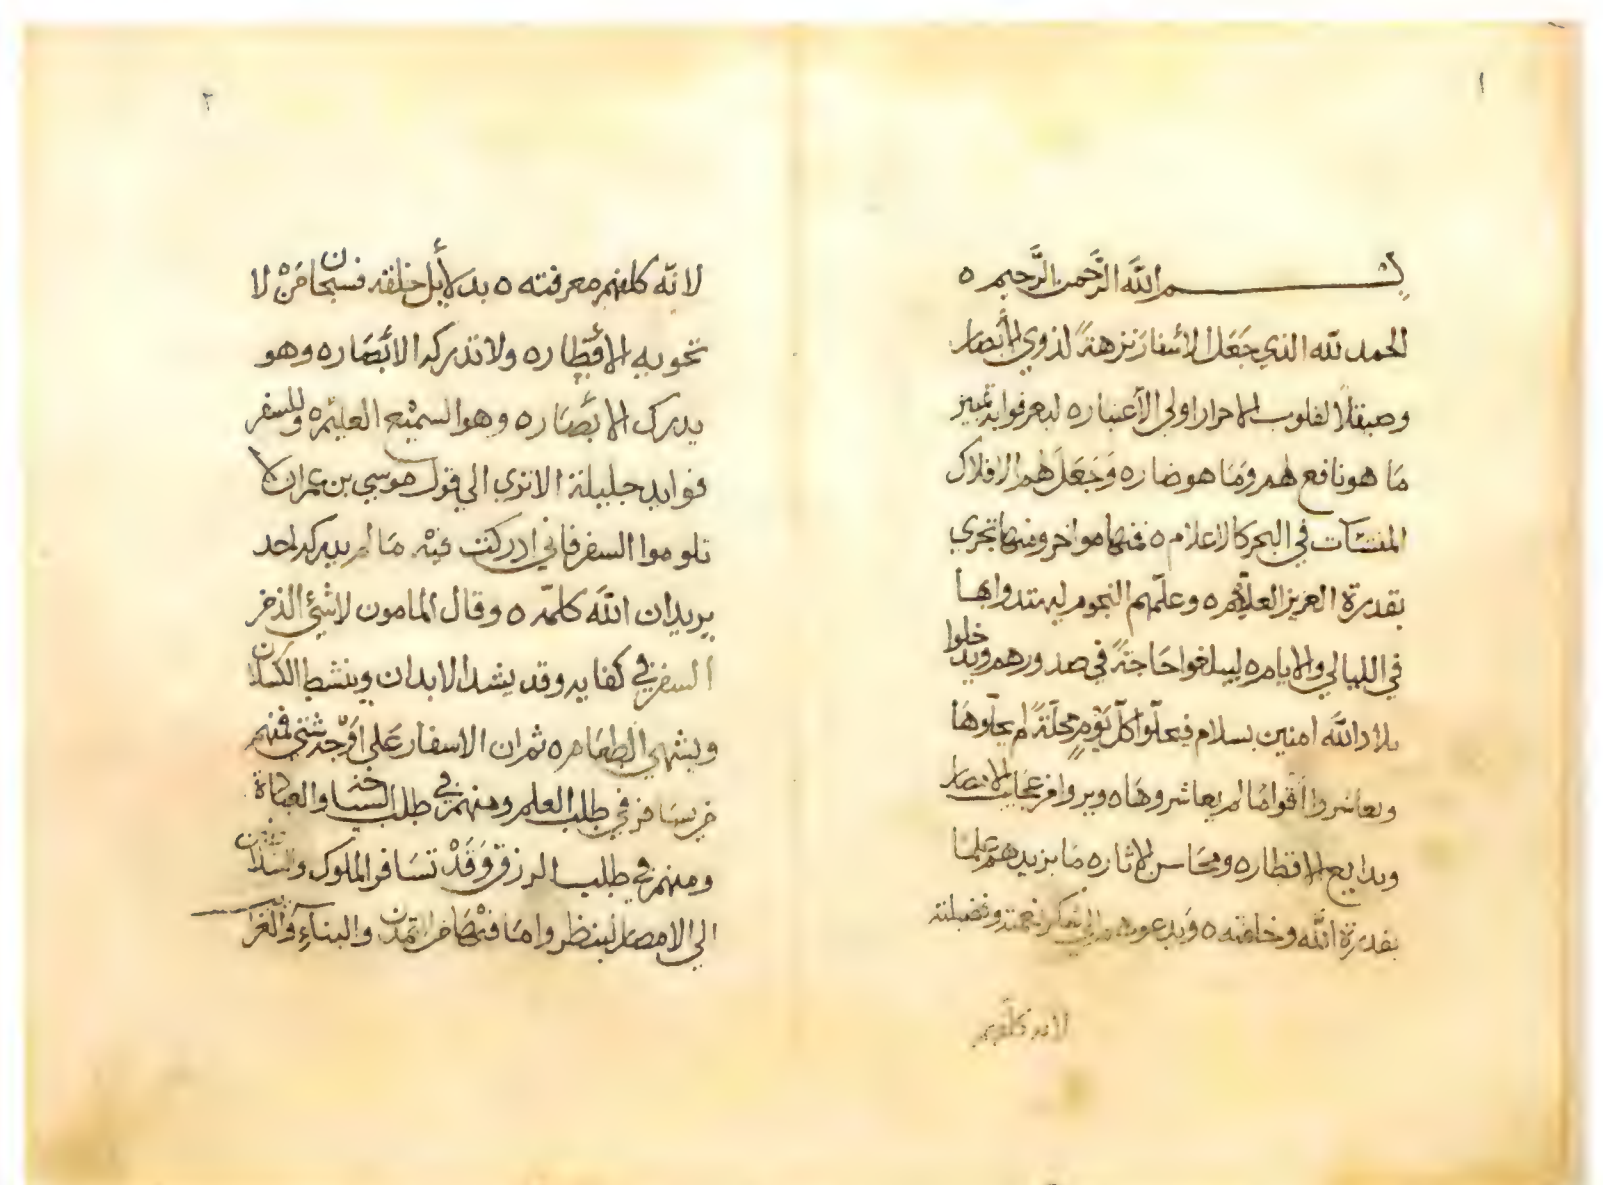 ١
بسم الله الرَّحمن الرَّحيم ه
الحمد لله الذي جَعَل الأسفارَ نزهةً لذوي الأبصار
وصيقلاً لقلوب الاحرار اولي الأعتبار ه ليعرفوا بد تمييز
مَا هو نافع لهم ومَا هو ضار ه وَجَعَلَ لهم الافلاك
المنشئات في البحر كالاعلام ه فمنها مواخر ومنها تجري
بقدرة العزيز العلّام ه وعلّمهم النجوم ليهتدوا بها
في الليالي والايام ه ليبلغوا حَاجةً في صدورهم ويدخلوا
بلاد الله امنين بسلام فيحلّوا كلّ يَوْمٍ محلّةً لم يحلّوهَا
ويعاشروا أقوامًا لم يعاشروهَا ه ويروا من عجَايب الامصار
وبدايع الاقطار ه ومحَاسن الاثار ه مَا يزيدهم علمًا
بقدرة الله وخلقته ه وَيدعوهم الي شكر نعمته وفضيلته
لانه كلّفهم
٢
لانّه كلفهم معرفته ه بدلأيل خلقه فسبحان مَنْ لا
تحويه الأقطار ه ولا تدركه الأبصَار ه وهو
يدرك الأبصَار ه وهو السميْع العليْم ه وللسفر
فوايد جليلة الا تري الي قول موسي بن عمران لا
تلوموا السفر فاني ادركت فيْه مَا لم يدركه احد
يريد ان الله كلمّه ه وقال المامون لا شيْ الذ من
السفر في كفايه وقد يشد الابدان وينشط الكسلان
ويشهي الطعَام ه ثم ان الاسفار عَلي اوْجه شتي فمنهم
من يسَافر في طلب العلم ومنهم في طلب السيَاحة والعبادة
ومنهم في طلب الرزق وَقَدْ تسَافر الملوك
الي الامصار لينظروا مَا فيْهَا من التمدن والبناء